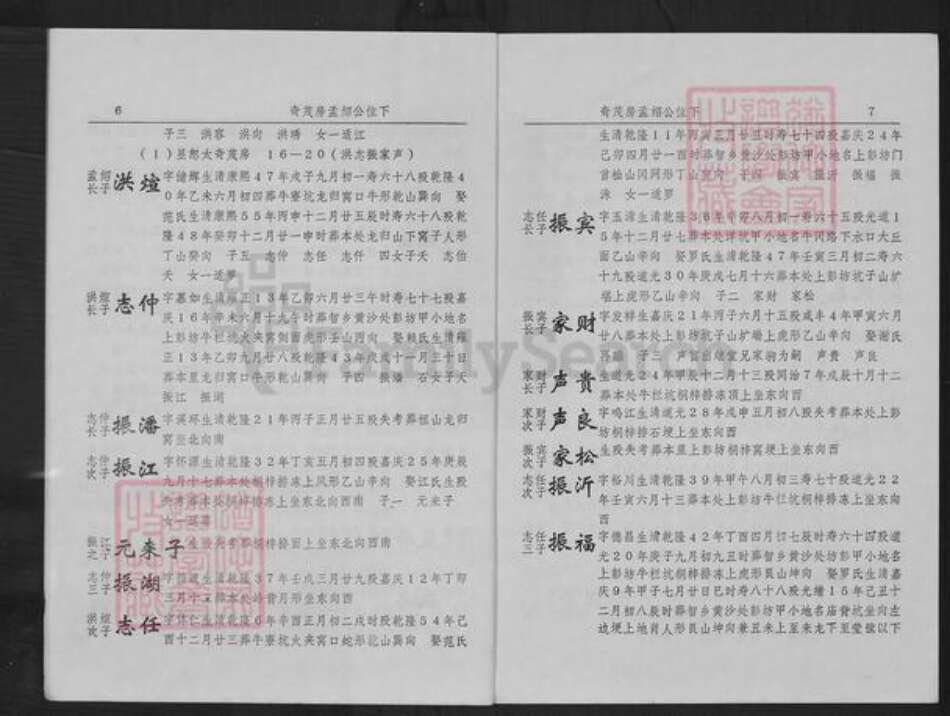 6
奇茂房孟绍公位下
子三 洪容 洪向 洪晴 女一适江
(1)呈郎太奇茂房 16—20(洪志振家声)
孟绍长子 洪煊 字储辉生清康熙47年戊子九月初一寿六十八殁乾隆4
0年乙未六月初四葬牛寮坑龙归窝口牛形乾山巽向 娶
范氏生清康熙55年丙申十二月廿五辰时寿六十八殁乾
隆48年癸卯十二月廿一申时葬本处龙归山下窝子人形
丁山癸向 子五 志仲 志任 志仟 四女子夭 志伯
夭 女一适罗
洪煊长子 志仲 字慕如生清雍正13年乙卯六月廿三午时寿七十七殁嘉
庆16年辛未六月十九午时葬智乡黄沙处彭坊甲小地名
上彭坊牛栏坑火夹窝侧面虎形壬山丙向 娶赖氏生清雍
正13年乙卯九月廿八殁乾隆43年戊戌十一月三十日
葬本里龙归窝口牛形乾山巽向 子四 振潘 石女子夭
振江 振湖
志仲长子 振潘 字溪环生清乾隆21年丙子正月廿五殁失考葬祖山龙归
窝坐北向南
志仲次子 振江 字怀源生清乾隆32年丁亥五月初四殁嘉庆25年庚辰
九月十七葬本处桐梓排冻上凤形乙山辛向 娶江氏生殁
失考葬本处桐梓排冻上坐东北向西南 子一 元来子
女一适
振江之子 元来子 生殁失考葬桐梓排面上坐东北向西南
志仲三子 振湖 生清乾隆37年壬戌三月廿九殁嘉庆12年丁卯
三月十五葬本处岭背月形坐东向西
洪煊次子 志任 字体仁生清乾隆6年辛酉正月初二戌时殁乾隆54年己
酉十二月廿三葬牛寮坑火夹窝口蛇形乾山巽向 娶范氏
奇茂房孟绍公位下
7
生清乾隆11年丙寅正月廿三时寿七十四殁嘉庆24年
己卯四月廿一酉时葬智乡黄沙处彭坊甲小地名上彭坊门
首榆山冈网形丁山癸向 子四 振宾 振沂 振福 振
洙 女一适罗
志任长子 振宾 字玉清生清乾隆36年辛卯八月初一寿六十五殁光道1
5年十二月廿七葬本处洋坑甲小地名牛冈路下水口大丘
面乙山辛向 娶罗氏生清乾隆47年壬寅三月初二寿六
十九殁道光30年庚戌七月十六葬本处上彭坊坑子山圹
塭上虎形乙山辛向 子二 家财 家松
振宾长子 家财 字发祥生嘉庆21年丙子六月十五殁咸丰4年甲寅六月
廿八葬本处上彭坊坑子山圹塭上虎形乙山辛向 娶谢氏
另适 子三 声富出继堂兄家驹为嗣 声贵 声良
家财长子 声贵 生道光24年甲辰十二月十三殁同治7年戊辰十月十二
葬本处牛栏坑桐梓排冻顶上坐东向西
家财次子 声良 字鸣江生清道光28年戊申五月初八殁失考葬本处上彭
坊桐梓排石埂上坐东向西
振宾次子 家松 生殁失考葬本里上彭坊桐梓窝埂上坐东向西
志任次子 振沂 字裕川生清乾隆39年甲午八月初三寿七十殁道光22
年壬寅六月十三葬本处上彭坊牛栏坑桐梓排冻上坐东向
西
志任三子 振福 字德昌生清乾隆42年丁酉四月初七辰时寿六十四殁道
光20年庚子九月初九丑时葬智乡黄沙处彭坊甲小地名
上彭坊牛栏坑桐梓排冻上虎形艮山坤向 娶罗氏生清嘉
庆9年甲子七月廿日巳时寿八十八殁光绪15年己丑十
二月初八辰时葬智乡黄沙处彭坊甲小地名庙背坑坐向左
边埂上地肖人形艮山坤向兼丑未上至来龙下至堂弦以下